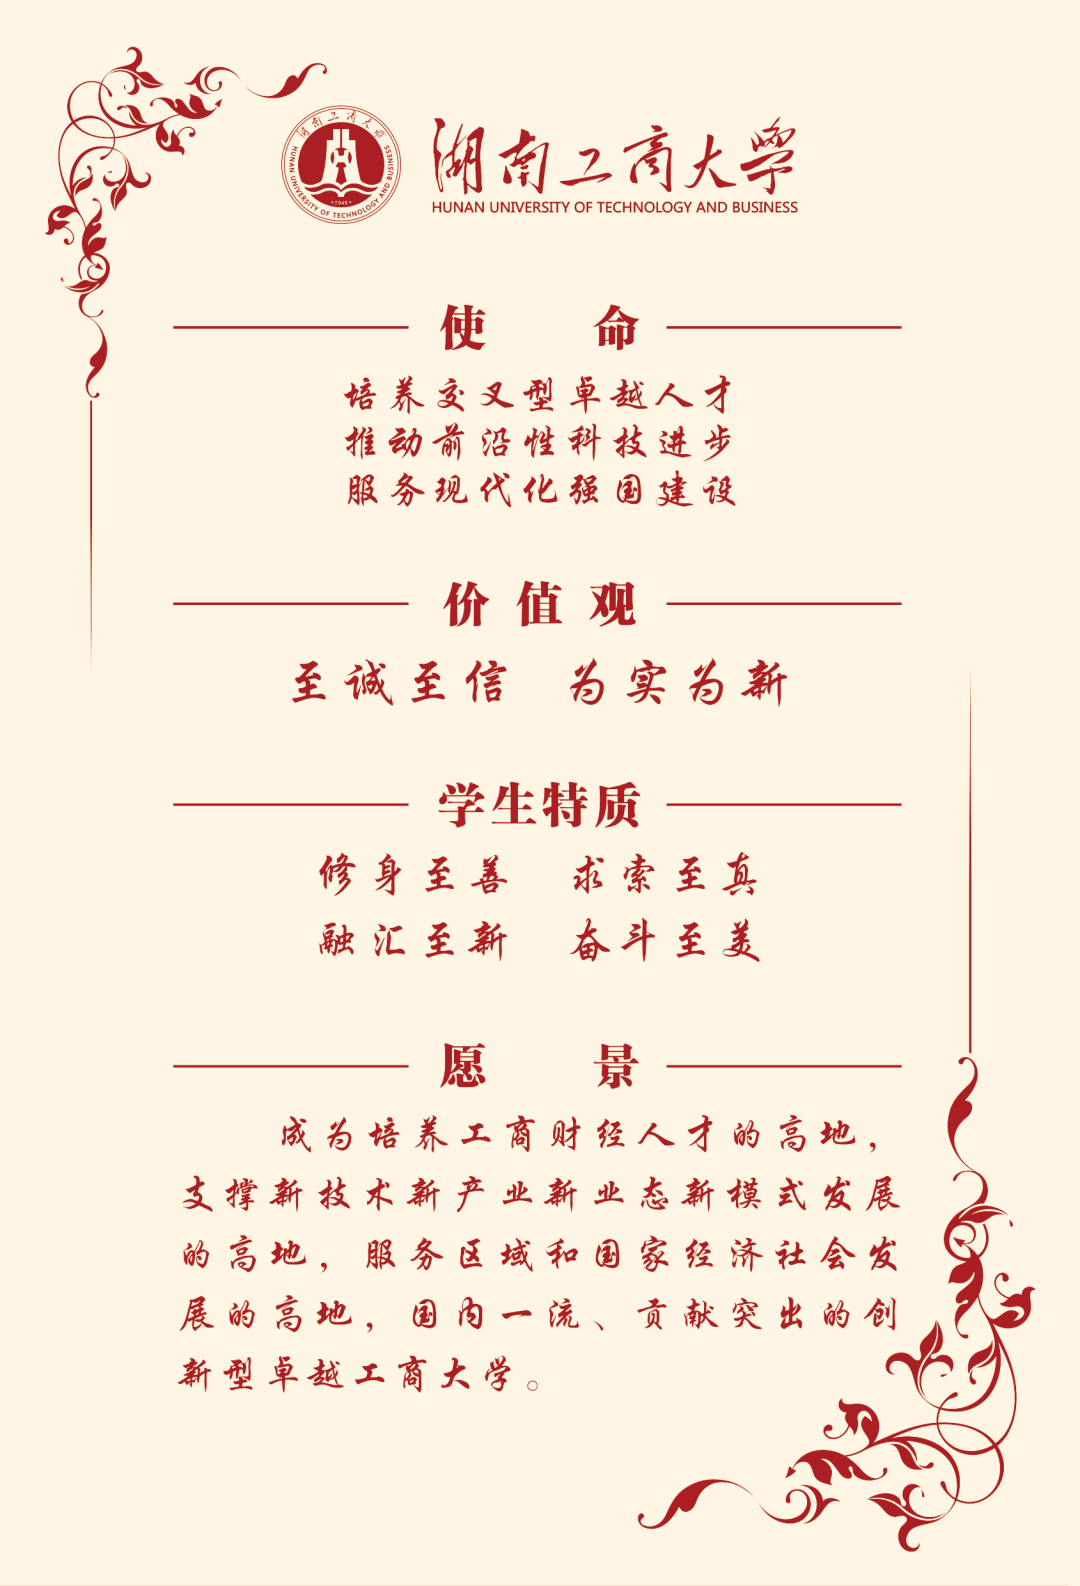 湖南工商大学
HUNAN UNIVERSITY OF TECHNOLOGY AND BUSINESS
·1949·
湖南工商大學
HUNAN UNIVERSITY OF TECHNOLOGY AND BUSINESS
使 命
培养交叉型卓越人才
推动前沿性科技进步
服务现代化强国建设
价值观
至诚至信 为实为新
学生特质
修身至善 求索至真
融汇至新 奋斗至美
愿 景
成为培养工商财经人才的高地，
支撑新技术新产业新业态新模式发展
的高地，服务区域和国家经济社会发
展的高地，国内一流、贡献突出的创
新型卓越工商大学。